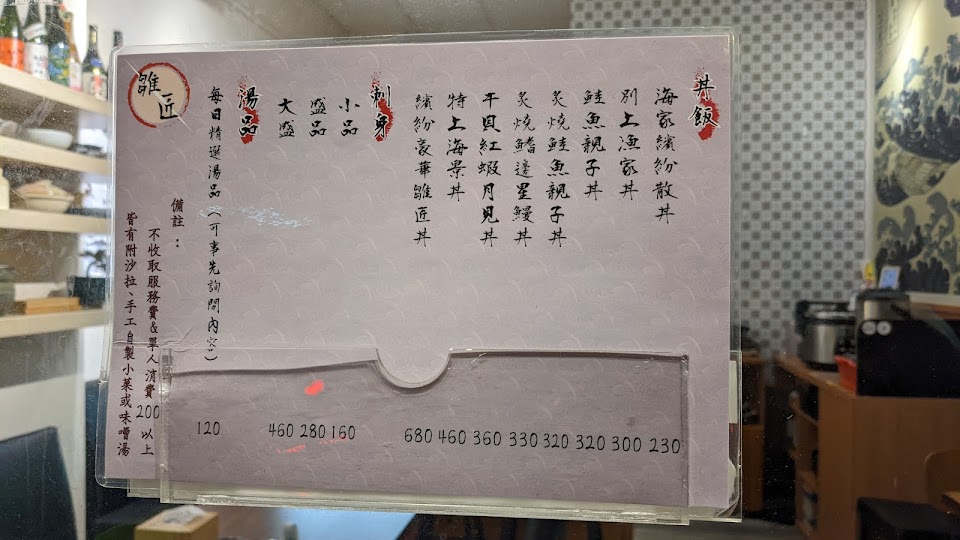 丼飯
海家繽紛散丼
230
別上漁家丼
300
鮭魚親子丼
320
炙燒鮭魚親子丼
320
炙燒鰭邊星鰻丼
330
干貝紅蝦月見丼
360
特上海景丼
460
繽紛豪華雛匠丼
680
刺身
小品
160
盛品
280
大盛
460
湯品
每日精選湯品(可事先詢問內容)
120
備註:
不收取服務費&單人消費200以上
皆有附沙拉、手工自製小菜或味噌湯
雛匠